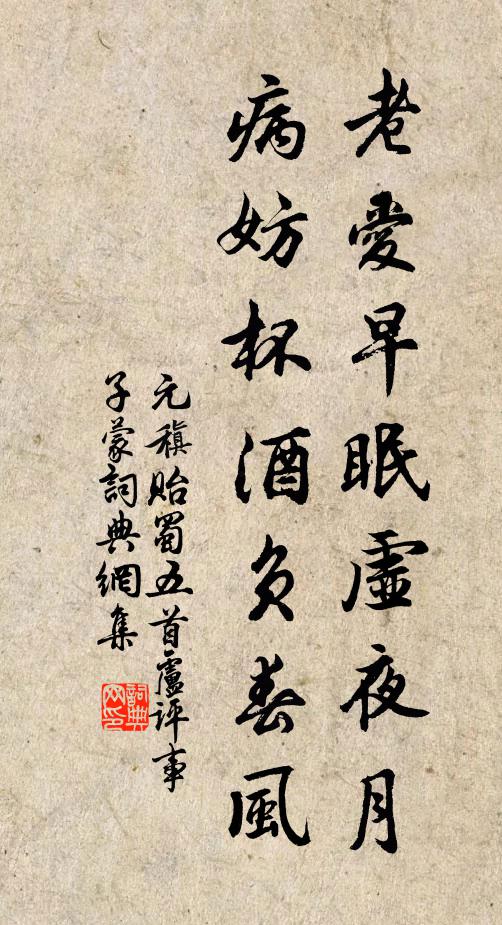 老愛早眠虛夜月
病妨杯酒負春風
元稹貽蜀五首盧評事
子蒙詞典網集
詞典网印